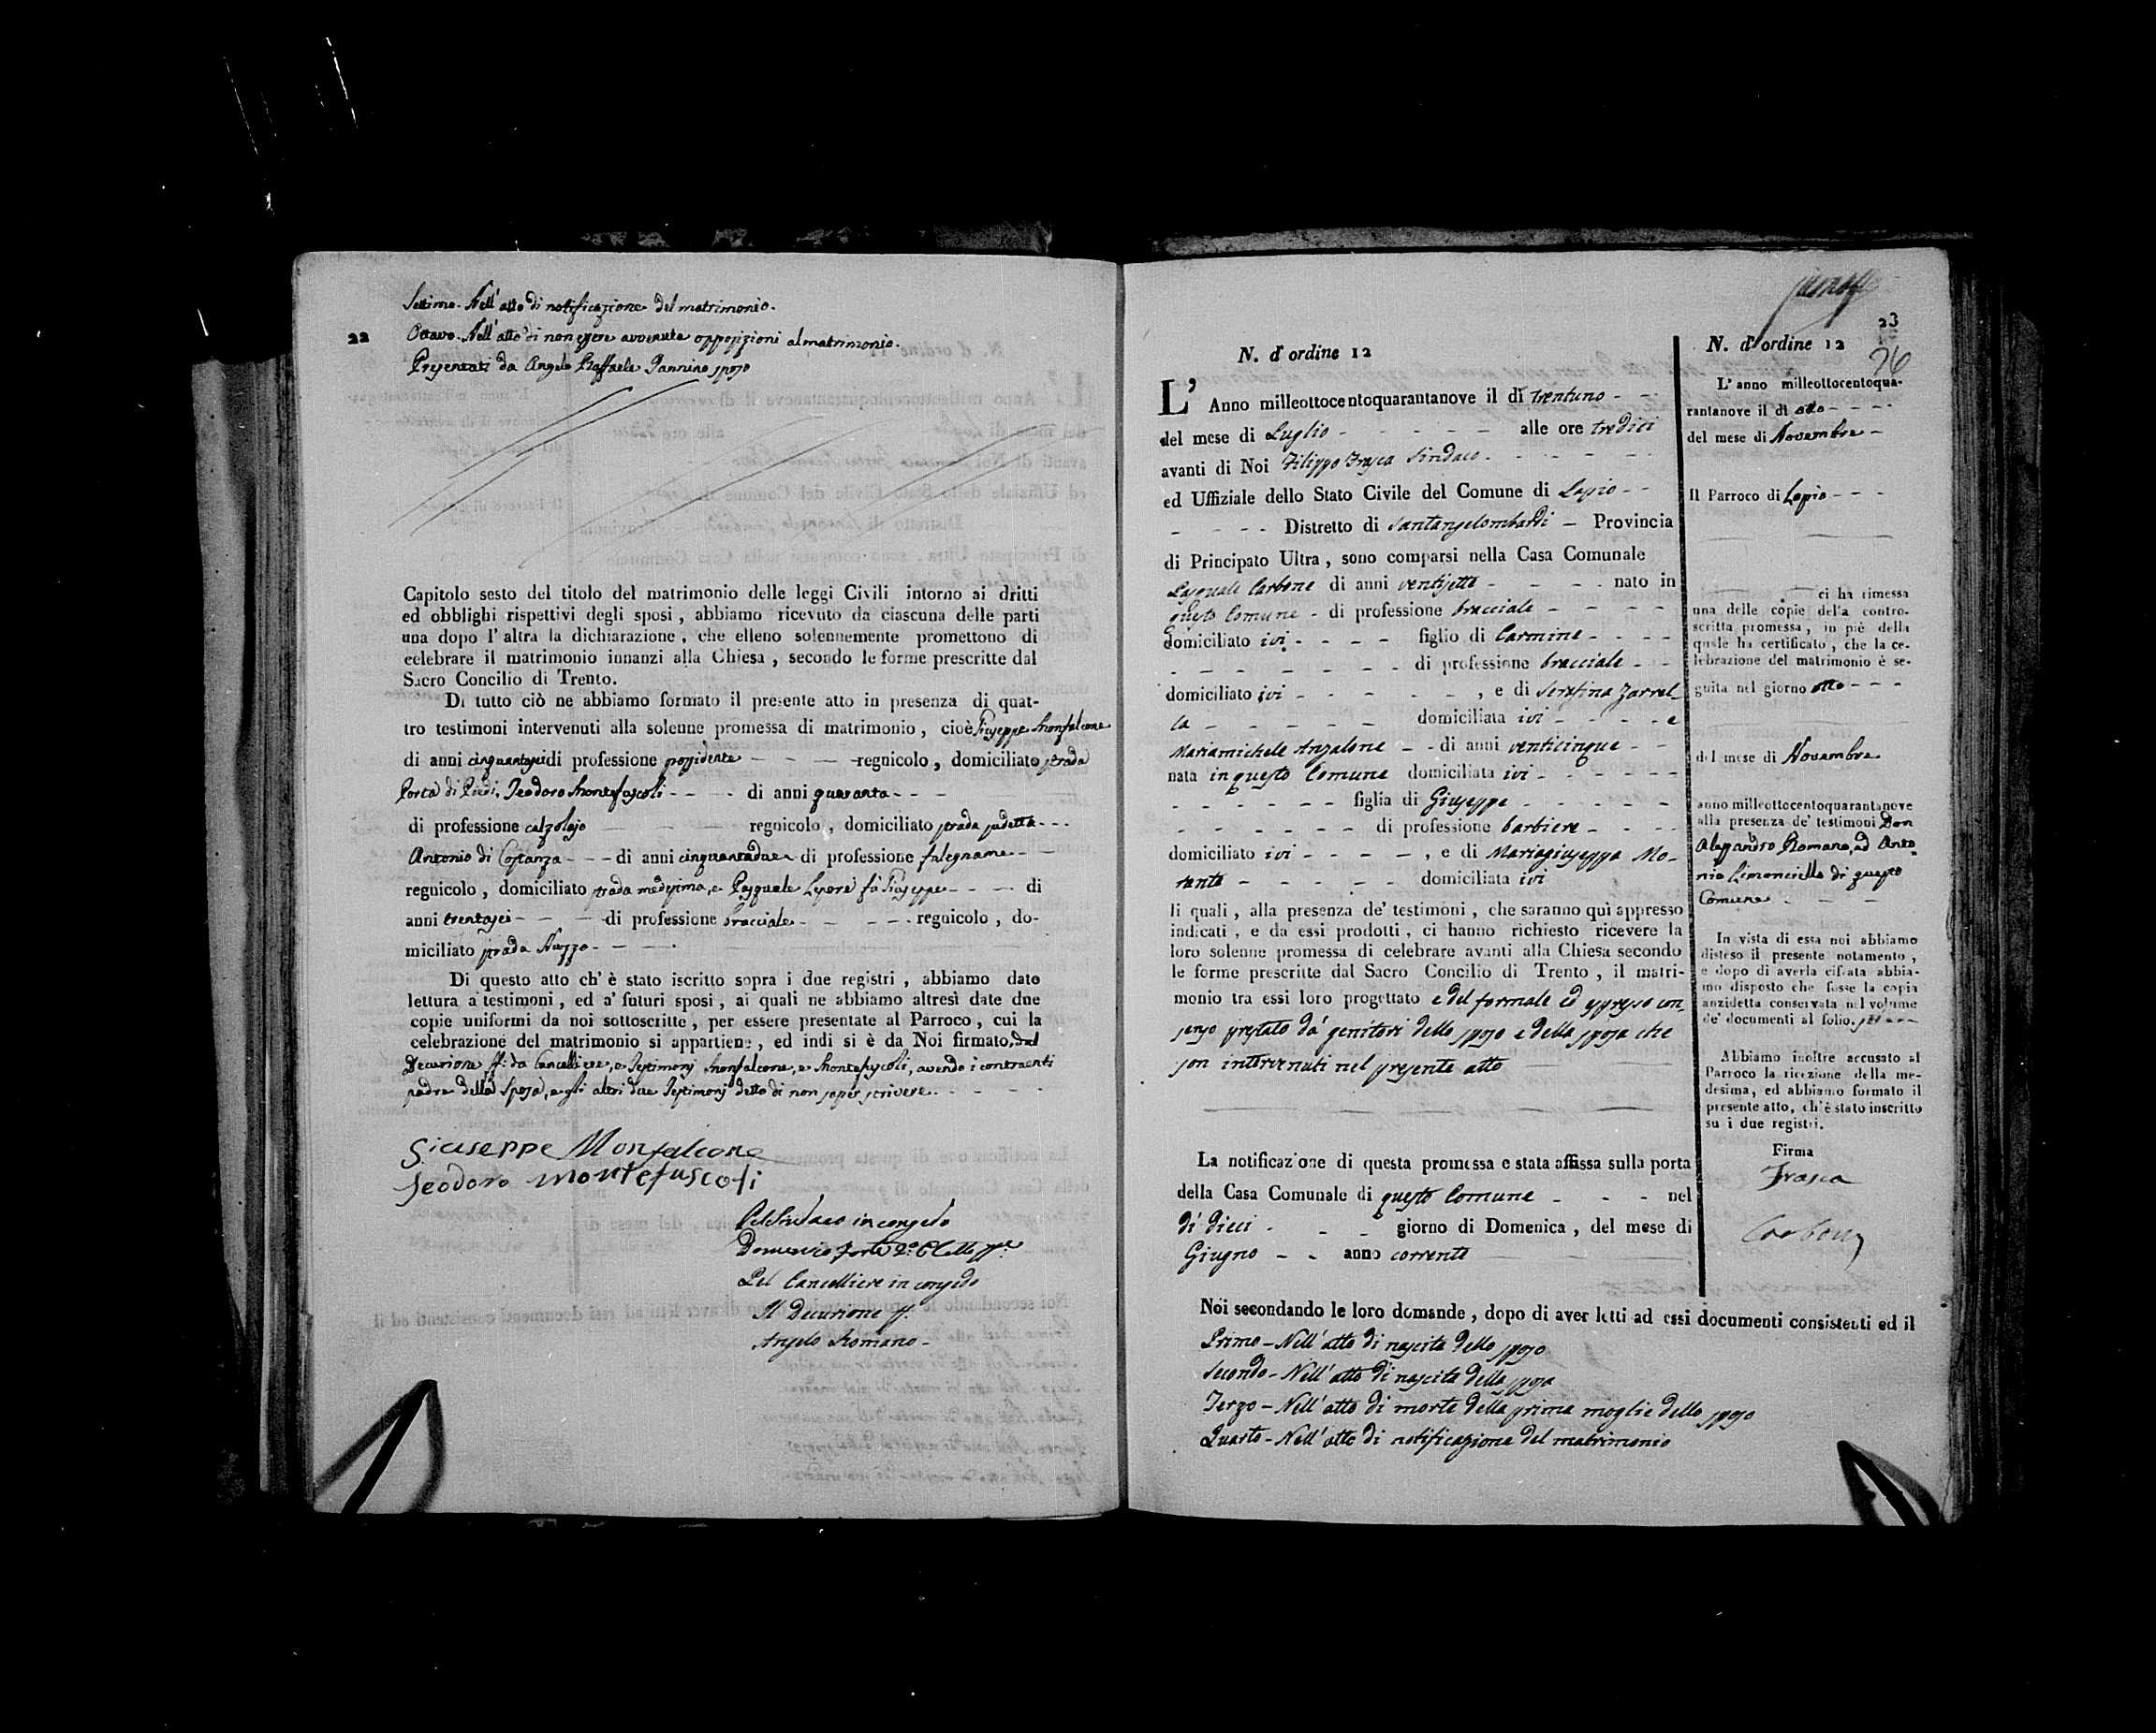 22
Settimo. Nell' atto di notificazione del matrimonio.
Ottavo. Nell' atto di non essere avvenute opposizioni al matrimonio.
Presentati da Angelo Raffaele Iannino sposo
Capitolo sesto del titolo del matrimonio delle leggi Civili intorno ai dritti
ed obblighi rispettivi degli sposi, abbiamo ricevuto da ciascuna delle parti
una dopo l' altra la dichiarazione, che elleno solennemente promettono di
celebrare il matrimonio innanzi alla Chiesa, secondo le forme prescritte dal
Sacro Concilio di Trento.
Di tutto ciò ne abbiamo formato il presente atto in presenza di quat-
tro testimoni intervenuti alla solenne promessa di matrimonio, cioè Giuseppe Monfalcone
di anni cinquantasei di professione possidente - - - regnicolo, domiciliato strada
Porta di Piedi, Teodoro Montefuscoli - - - - di anni quaranta - - -
di professione calzolajo regnicolo, domiciliato strada sudetta - - -
Antonio di Costanza - - - di anni cinquantadue di professione falegname - -
regnicolo, domiciliato strada medesima, e Pasquale Lepore fù Giuseppe - - - di
anni trentasei - - - di professione bracciale - - - - - regnicolo, do-
miciliato strada Nuzzo - - -
Di questo atto ch' è stato iscritto sopra i due registri, abbiamo dato
lettura a' testimoni, ed a' futuri sposi, ai quali ne abbiamo altresì date due
copie uniformi da noi sottoscritte, per essere presentate al Parroco, cui la
celebrazione del matrimonio si appartiene, ed indi si è da Noi firmato, dal
Decurione ff. da Cancelliere, e Testimonj Monfalcone, e Montefuscoli, avendo i contraenti
padre della Sposa, e gli altri due Testimonj detto di non saper scrivere. - - -
Giuseppe Monfalcone
Teodoro montefuscoli
Pel Sindaco in congedo
Domenico Forte 2.o Eletto ff.e
Pel Cancelliere in congedo
Il Decurione ff.
Angelo Romano -
23
26
N. d' ordine 12
L' Anno milleottocentoquarantanove il dì trentuno - -
del mese di Luglio - - - - - alle ore tredici
avanti di Noi Filippo Frasca Sindaco - - - - -
ed Uffiziale dello Stato Civile del Comune di Lapio - -
- - - - Distretto di Santangelombardi - Provincia
di Principato Ultra, sono comparsi nella Casa Comunale
Pasquale Carbone di anni ventisette - - - - nato in
questo Comune - di professione bracciale - - - -
domiciliato ivi - - - - figlio di Carmine - - - -
- - - - - - - di professione bracciale - -
domiciliato ivi - - - - - , e di Serafina Zarrel-
la - - - - - domiciliata ivi - - - - e
Mariamichele Anzalone - - di anni venticinque - -
nata in questo Comune domiciliata ivi - - - - - -
- - - - - - figlia di Giuseppe - - - - -
- - - - - - di professione barbiere - - - -
domiciliato ivi - - - - , e di Mariagiuseppa Mo-
rante - - - - - domiciliata ivi
li quali, alla presenza de' testimoni, che saranno quì appresso
indicati, e da essi prodotti, ci hanno richiesto ricevere la
loro solenne promessa di celebrare avanti alla Chiesa secondo
le forme prescritte dal Sacro Concilio di Trento, il matri-
monio tra essi loro progettato e del formale ed espresso con-
senso prestato da' genitori dello sposo e della sposa che
son intervenuti nel presente atto
La notificazione di questa promessa e stata affissa sulla porta
della Casa Comunale di questo Comune - - - nel
dì dieci - - - giorno di Domenica, del mese di
Giugno - - anno corrente
Noi secondando le loro domande, dopo di aver letti ad essi documenti consistenti ed il
Primo - Nell' atto di nascita dello sposo
Secondo - Nell' atto di nascita della sposa
Terzo - Nell' atto di morte della prima moglie dello sposo
Quarto - Nell' atto di notificazione del matrimonio
N. d' ordine 12
L' anno milleottocentoqua-
rantanove il dì otto - - - -
del mese di Novembre -
Il Parroco di Lapio - - -
ci ha rimessa
una delle copie della contro-
scritta promessa, in piè della
quale ha certificato, che la ce-
lebrazione del matrimonio è se-
guita nel giorno otto - - -
del mese di Novembre
anno milleottocentoquarantanove
alla presenza de' testimoni Don
Alessandro Romano, ed Anto-
nio Limonciello di questo
Comune - - -
In vista di essa noi abbiamo
disteso il presente notamento,
e dopo di averla cifrata abbia-
mo disposto che fosse la copia
anzidetta conservata nel volume
de' documenti al folio.
Abbiamo inoltre accusato al
Parroco la ricezione della me-
desima, ed abbiamo formato il
presente atto, ch' è stato inscritto
su i due registri.
Firma
Frasca
Carbone